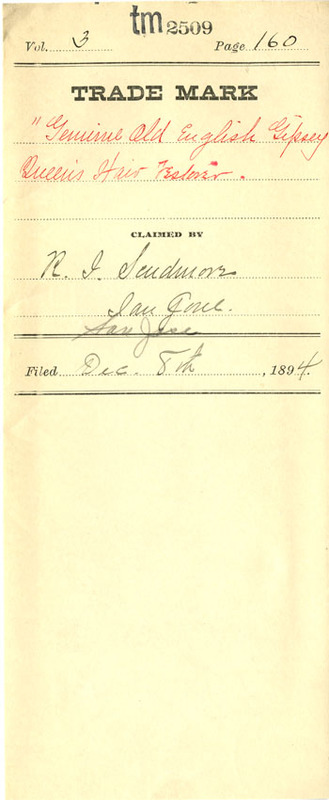 tm 2509
Vol. 3 Page 160
TRADE MARK
"Genuine Old English Gipsey
Queen's Hair Restorer.
CLAIMED BY
R. I.
San Jose.
San Jose
Filed Dec. 8th, 1894.